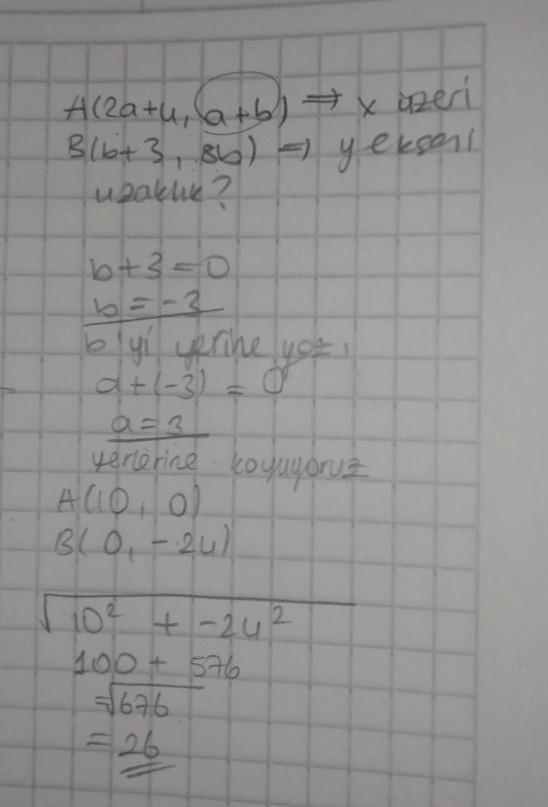 A(2a+4, a+b) ⇒ x üzeri
B(b+3, 8b) ⇒ y ekseni
uzaklık?
b+3=0
b=-3
b'yi yerine yaz.
a+(-3)=0
a=3
yerlerine koyuyoruz
A(10, 0)
B(0, -24)
√10² + -24²
100 + 576
=√676
=26